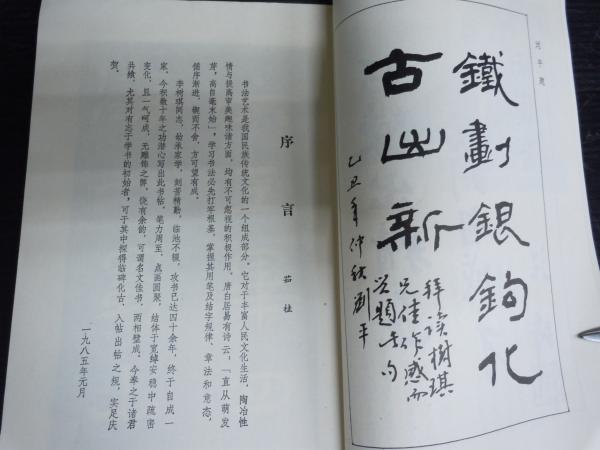 鐵劃銀鉤化
古出新
乙丑年仲秋劉平
拜读樹琪
兄佳作感而
題書句
序言
茹桂
书法艺术是我国民族传统文化的一个组成部分。它对于丰富人民文化生活，陶冶性
情与提高审美趣味诸方面，均有不可忽视的积极作用。唐白居易有诗云：“直从萌发
芽，高自毫末始”，学习书法必先打牢根基，掌握其用笔及结字规律、章法和意态，
循序渐进，锲而不舍，方可望有成。
李树琪同志，幼承家学，刻苦精勤，临池不辍，攻书已达四十余年，终于自成一
家。今积数十年之功潜心写出此书帖，笔力周至，点画圆聚，结体于宽绰安稳中疏密
变化，且一气呵成，无雕饰之弊，饶有余韵，可谓名文佳书，两相璧成。今奉之于诸君
共飨，尤其对有志于学书的初始者，可于其中探得临碑化古、入帖出帖之规，实足庆
贺。
一九八五年元月